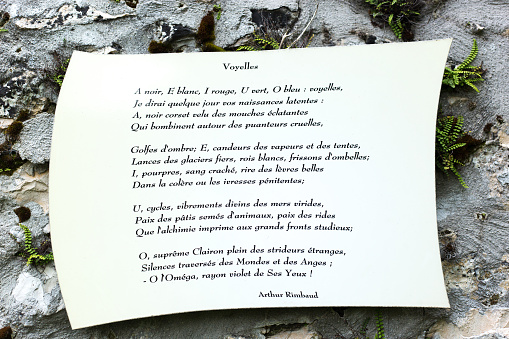 Voyelles
A noir, E blanc, I rouge, U vert, O bleu : voyelles,
Je dirai quelque jour vos naissances latentes :
A, noir corset velu des mouches éclatantes
Qui bombinent autour des puanteurs cruelles,
Golfes d'ombre; E, candeurs des vapeurs et des tentes,
Lances des glaciers fiers, rois blancs, frissons d'ombelles;
I, pourpres, sang craché, rire des lèvres belles
Dans la colère ou les ivresses pénitentes;
U, cycles, vibrements divins des mers virides,
Paix des pâtis semés d'animaux, paix des rides
Que l'alchimie imprime aux grands fronts studieux;
O, suprême Clairon plein des strideurs étranges,
Silences traversés des Mondes et des Anges ;
- O l'Oméga, rayon violet de Ses Yeux !
Arthur Rimbaud